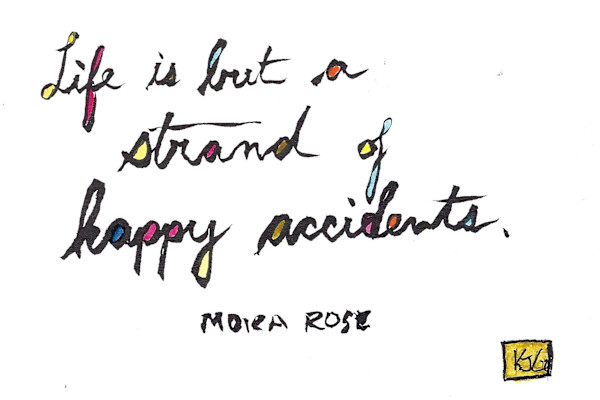 Life is but a
strand of
happy accidents.
MOIRA ROSE
KJG